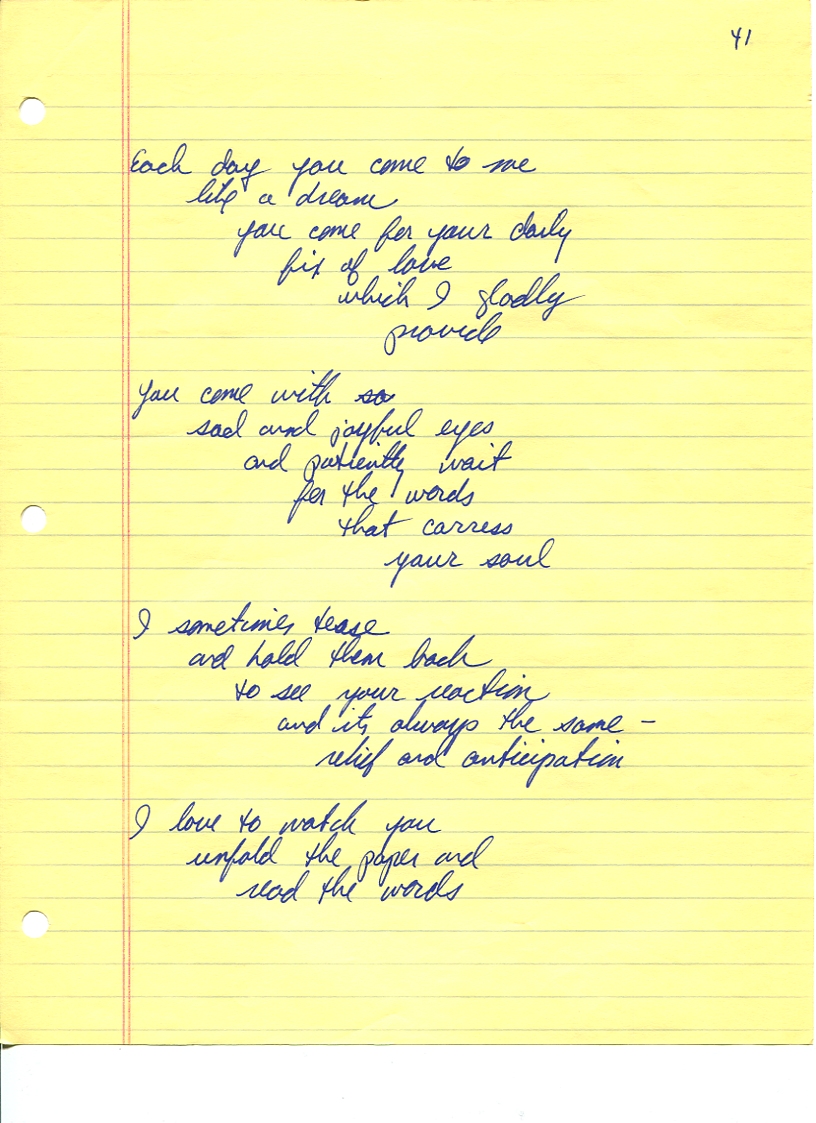 41
Each day you come to me
like a dream
you come for your daily
fix of love
which I gladly
provide
You come with so
sad and joyful eyes
and patiently wait
for the words
that carress
your soul
I sometimes tease
and hold them back
to see your reaction
and its always the same –
relief and anticipation
I love to watch you
unfold the paper and
read the words